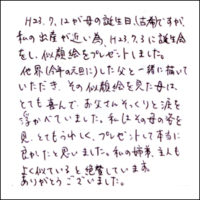 H23.7.12が母の誕生日(古希)ですが、
私の出産が近い為、H23.7.3に誕生会
をし、似顔絵をプレゼントしました。
他界(今年の元旦に)した父と一緒に描いて
いただき、その似顔絵を見た母は、
とても喜んで、お父さんそっくりと涙を
浮かべていました。私はその母の姿を
見、とてもうれしく、プレゼントして本当に
良かったと思いました。私の姉妹、主人も
よく似ていると絶賛しています。
ありがとうございました。